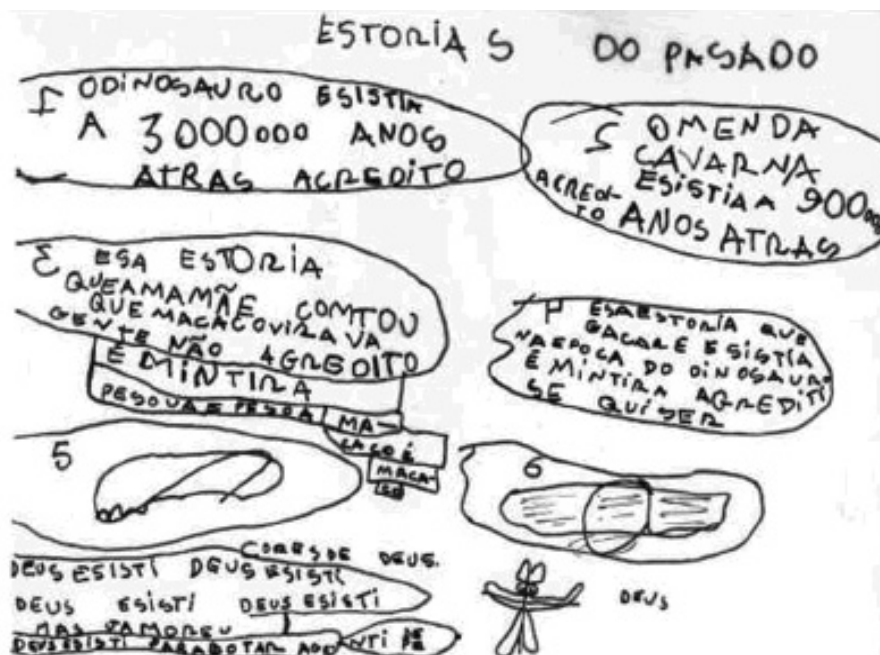 ESTORIAS DO PASADO
I ODINOSAURO ESISTIA
A 3000000 ANOS
ATRAS ACREDITO
S OMENDA
CAVARNA
ESISTIA A 900000
ACREDITO ANOS ATRAS
ESA ESTORIA
QUEAMAMÃE COMTOU
QUEMACACOVIRAVA
GENTE NÃO AGREDITO
É MINTIRA
PESOUA E PESOA MA-
CACO É
MACA-
CO
ESAESTORIA QUE
GACARE ESISTIA
NAEPOCA DO DINOSAURO
É MINTIRA AGREDITI
SE QUISER
5
6
CORESDE DEUS.
DEUS ESISTI DEUS ESISTI
DEUS ESISTI DEUS ESISTI
MAS JAMOREU
DEUSESISTI PARABOTAR
DEUS